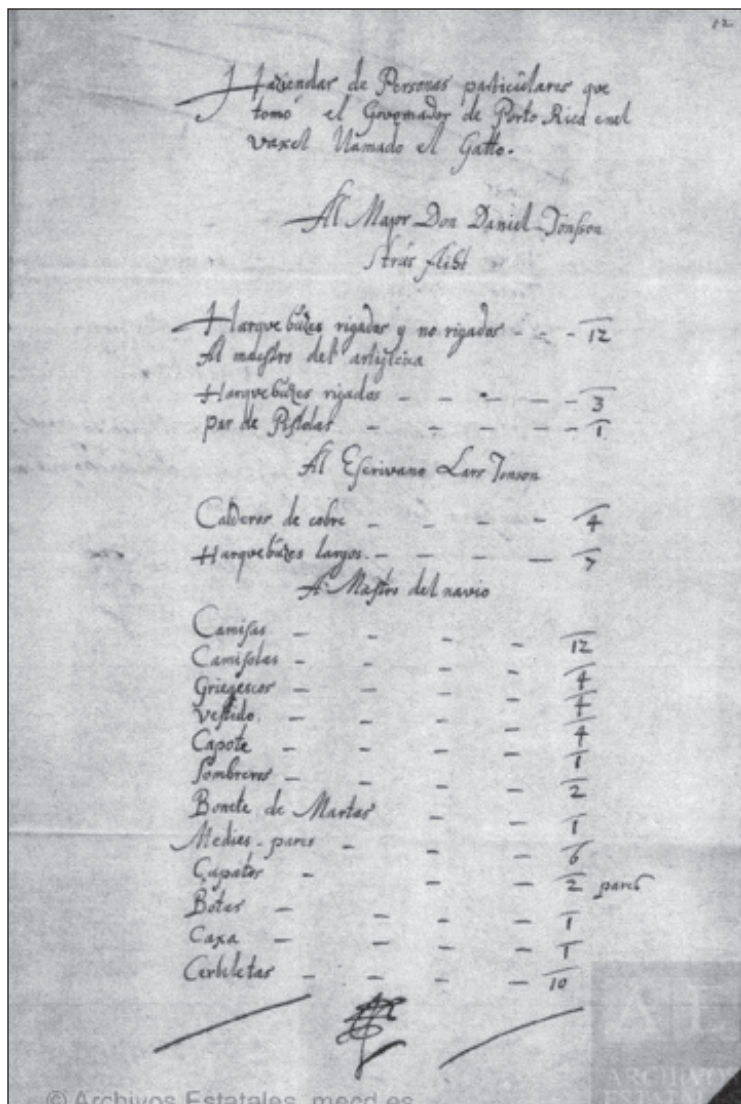 12
Haziendas de Personas particulares que
tomó el Governador de Porto Rico enel
vaxel llamado el Gatto.
Al Major Don Daniel Jonsson
Harquebuzes rigados y no rigados - - - 12
Al maestro del
Harquebuzes rigados - - - - - 3
par de Pistolas - - - - - 1
Al Escrivano Lars Jonson
Calderos de cobre - - - - 4
Harquebuzes largos - - - - - 7
A. Mastro del navio
Camisas - - - - - 12
Camisolas - - - - - 4
Griegescos - - - - - 4
Vestido - - - - - 4
Capote - - - - - 1
Sombreros - - - - - 2
Bonete de Martas - - - 1
Medies - pares - - - 6
Çapatos - - - 2 pares
Botas - - - - - 1
Caxa - - - - - 1
- - - - 10
© Archivos Estatales, mecd.es
ARCHIVOS
ESTATALES